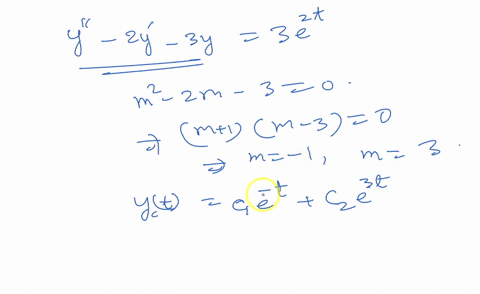 y'' - 2y' - 3y = 3e^{2t}
m² - 2m - 3 = 0.
⇒ (m+1) (m-3) = 0
⇒ m = -1, m = 3.
y_c(t) = c₁e^{-t} + c₂e^{3t}